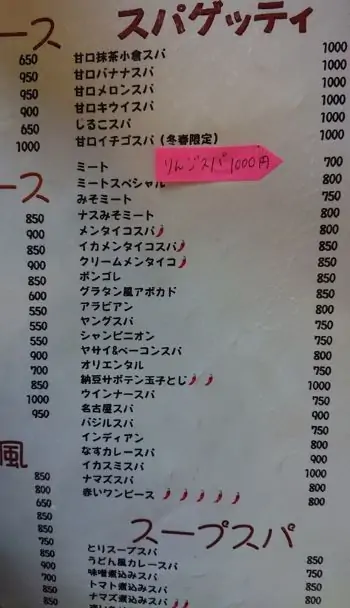 ース
650
950
950
900
650
1000
ース
850
900
850
900
850
600
550
550
900
700
850
1000
950
風
850
800
650
850
850
850
900
700
850
800
スパゲッティ
甘口抹茶小倉スパ 1000
甘口バナナスパ 1000
甘口メロンスパ 1000
甘口キウイスパ 1000
しるこスパ 1000
甘口イチゴスパ (冬春限定) 1000
りんごスパ 1000円
ミート 700
ミートスペシャル 800
みそミート 750
ナスみそミート 800
メンタイコスパ 800
イカメンタイコスパ 850
クリームメンタイコ 850
ボンゴレ 850
グラタン風アボカド 850
アラビアン 800
ヤングスパ 750
シャンピニオン 750
ヤサイ&ベーコンスパ 800
オリエンタル 750
納豆サボテン玉子とじ 1000
ウインナースパ 750
名古屋スパ
バジルスパ
インディアン
なすカレースパ
イカスミスパ 1000
ナマズスパ
赤いワンピース 800
スープスパ
とりスープスパ
うどん風カレースパ 850
味噌煮込みスパ 750
トマト煮込みスパ 850
ナマズ煮込みスパ